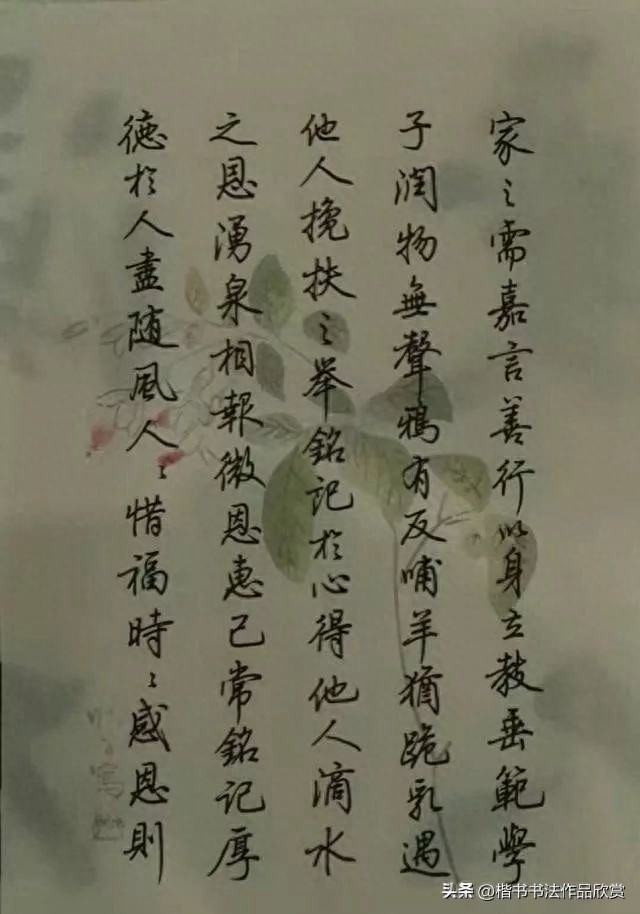 家之需嘉言善行以身立教垂範學
子潤物無聲鴉有反哺羊猶跪乳遇
他人攙扶之舉銘記於心得他人滴水
之恩湧泉相報微恩惠己常銘記厚
德於人盡随風人〻惜福時〻感恩則
頭条 @楷书书法作品欣赏